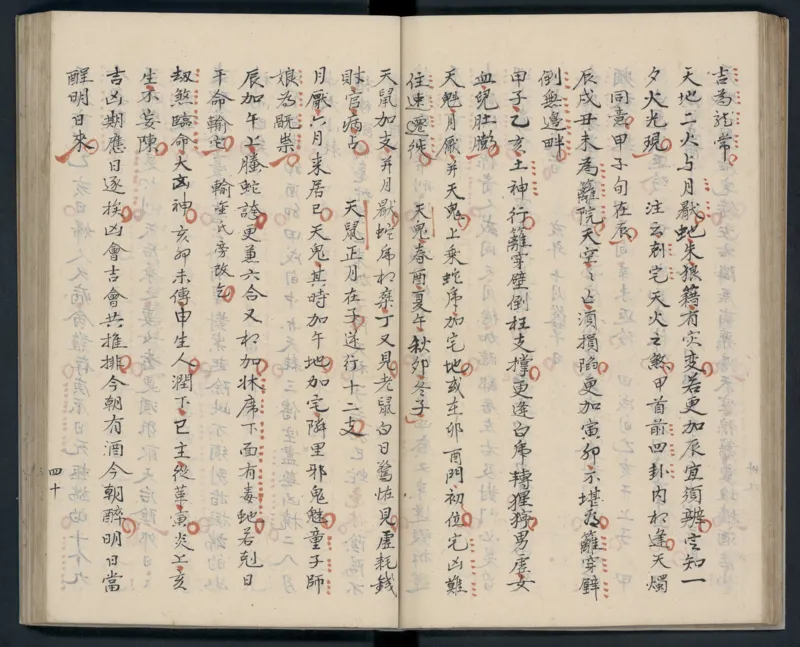 吉為龍常
天地二火与月厭蛇朱狼藉有灾变若更加辰宜須辨定知一
夕火光現　注云刺宅天火之煞甲首前四卦内相逢天燭
同意甲子旬在辰
辰戌丑未為籬院天空〻占須損陷更加寅卯不堪為籬穿壁
倒無邊畔
甲子乙亥土神行籬穿壁倒柱支撐更逢白虎轉猩獰男虚女
血兒肚膨
天魁月厭并天鬼上乗蛇虎加宅地或在卯酉門初位宅凶難
住速遷徙　天鬼春酉夏午秋卯冬子
天鼠加支并月厭蛇虎相乗丁又見老鼠白日驚怪見虚耗錢
財官病占　天鼠正月在子逆行十二支
月厭六月来居巳天鬼其時加午地加宅隣里邪鬼魅童子師
娘為厭祟
辰加午上螣蛇誇更兼六合又相加牀席下面有毒蛇若剋日
干命輸它　輸
劫煞臨命大凶神亥卯未傳申生人潤下巳主從革寅炎上亥
生不妄陳
吉凶期應日逐挨凶會吉會共推排今朝有酒今朝醉明日當
醒明日来
四十